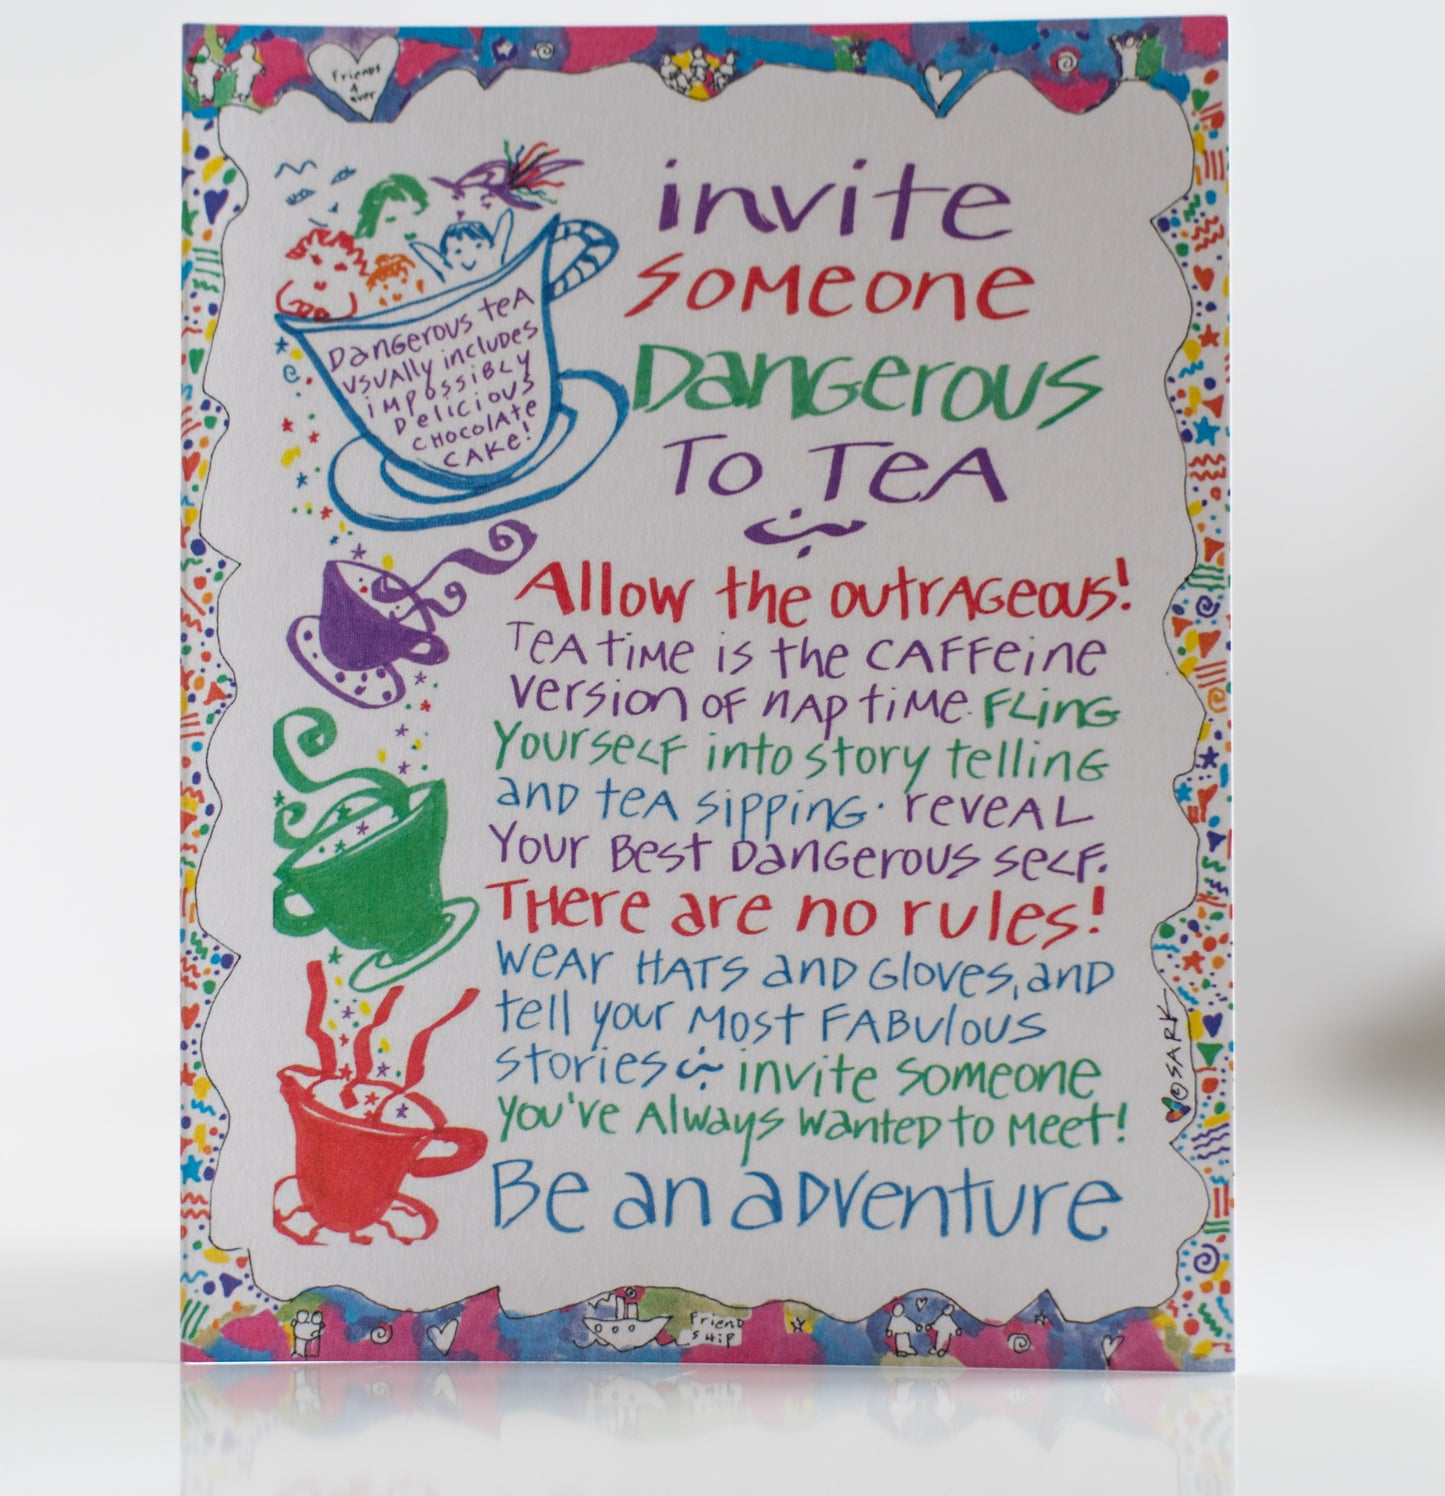 Friends
4
ever
invite
someone
Dangerous
To Tea
Dangerous tea
usually includes
impossibly
Delicious
chocolate
cake!
Allow the outrageous!
Tea time is the caffeine
version of nap time. Fling
yourself into story telling
and tea sipping· reveal
your best dangerous self.
There are no rules!
wear hats and gloves, and
tell your most fabulous
stories invite someone
you've always wanted to meet!
Be an adventure
©SARK
Friend
ship